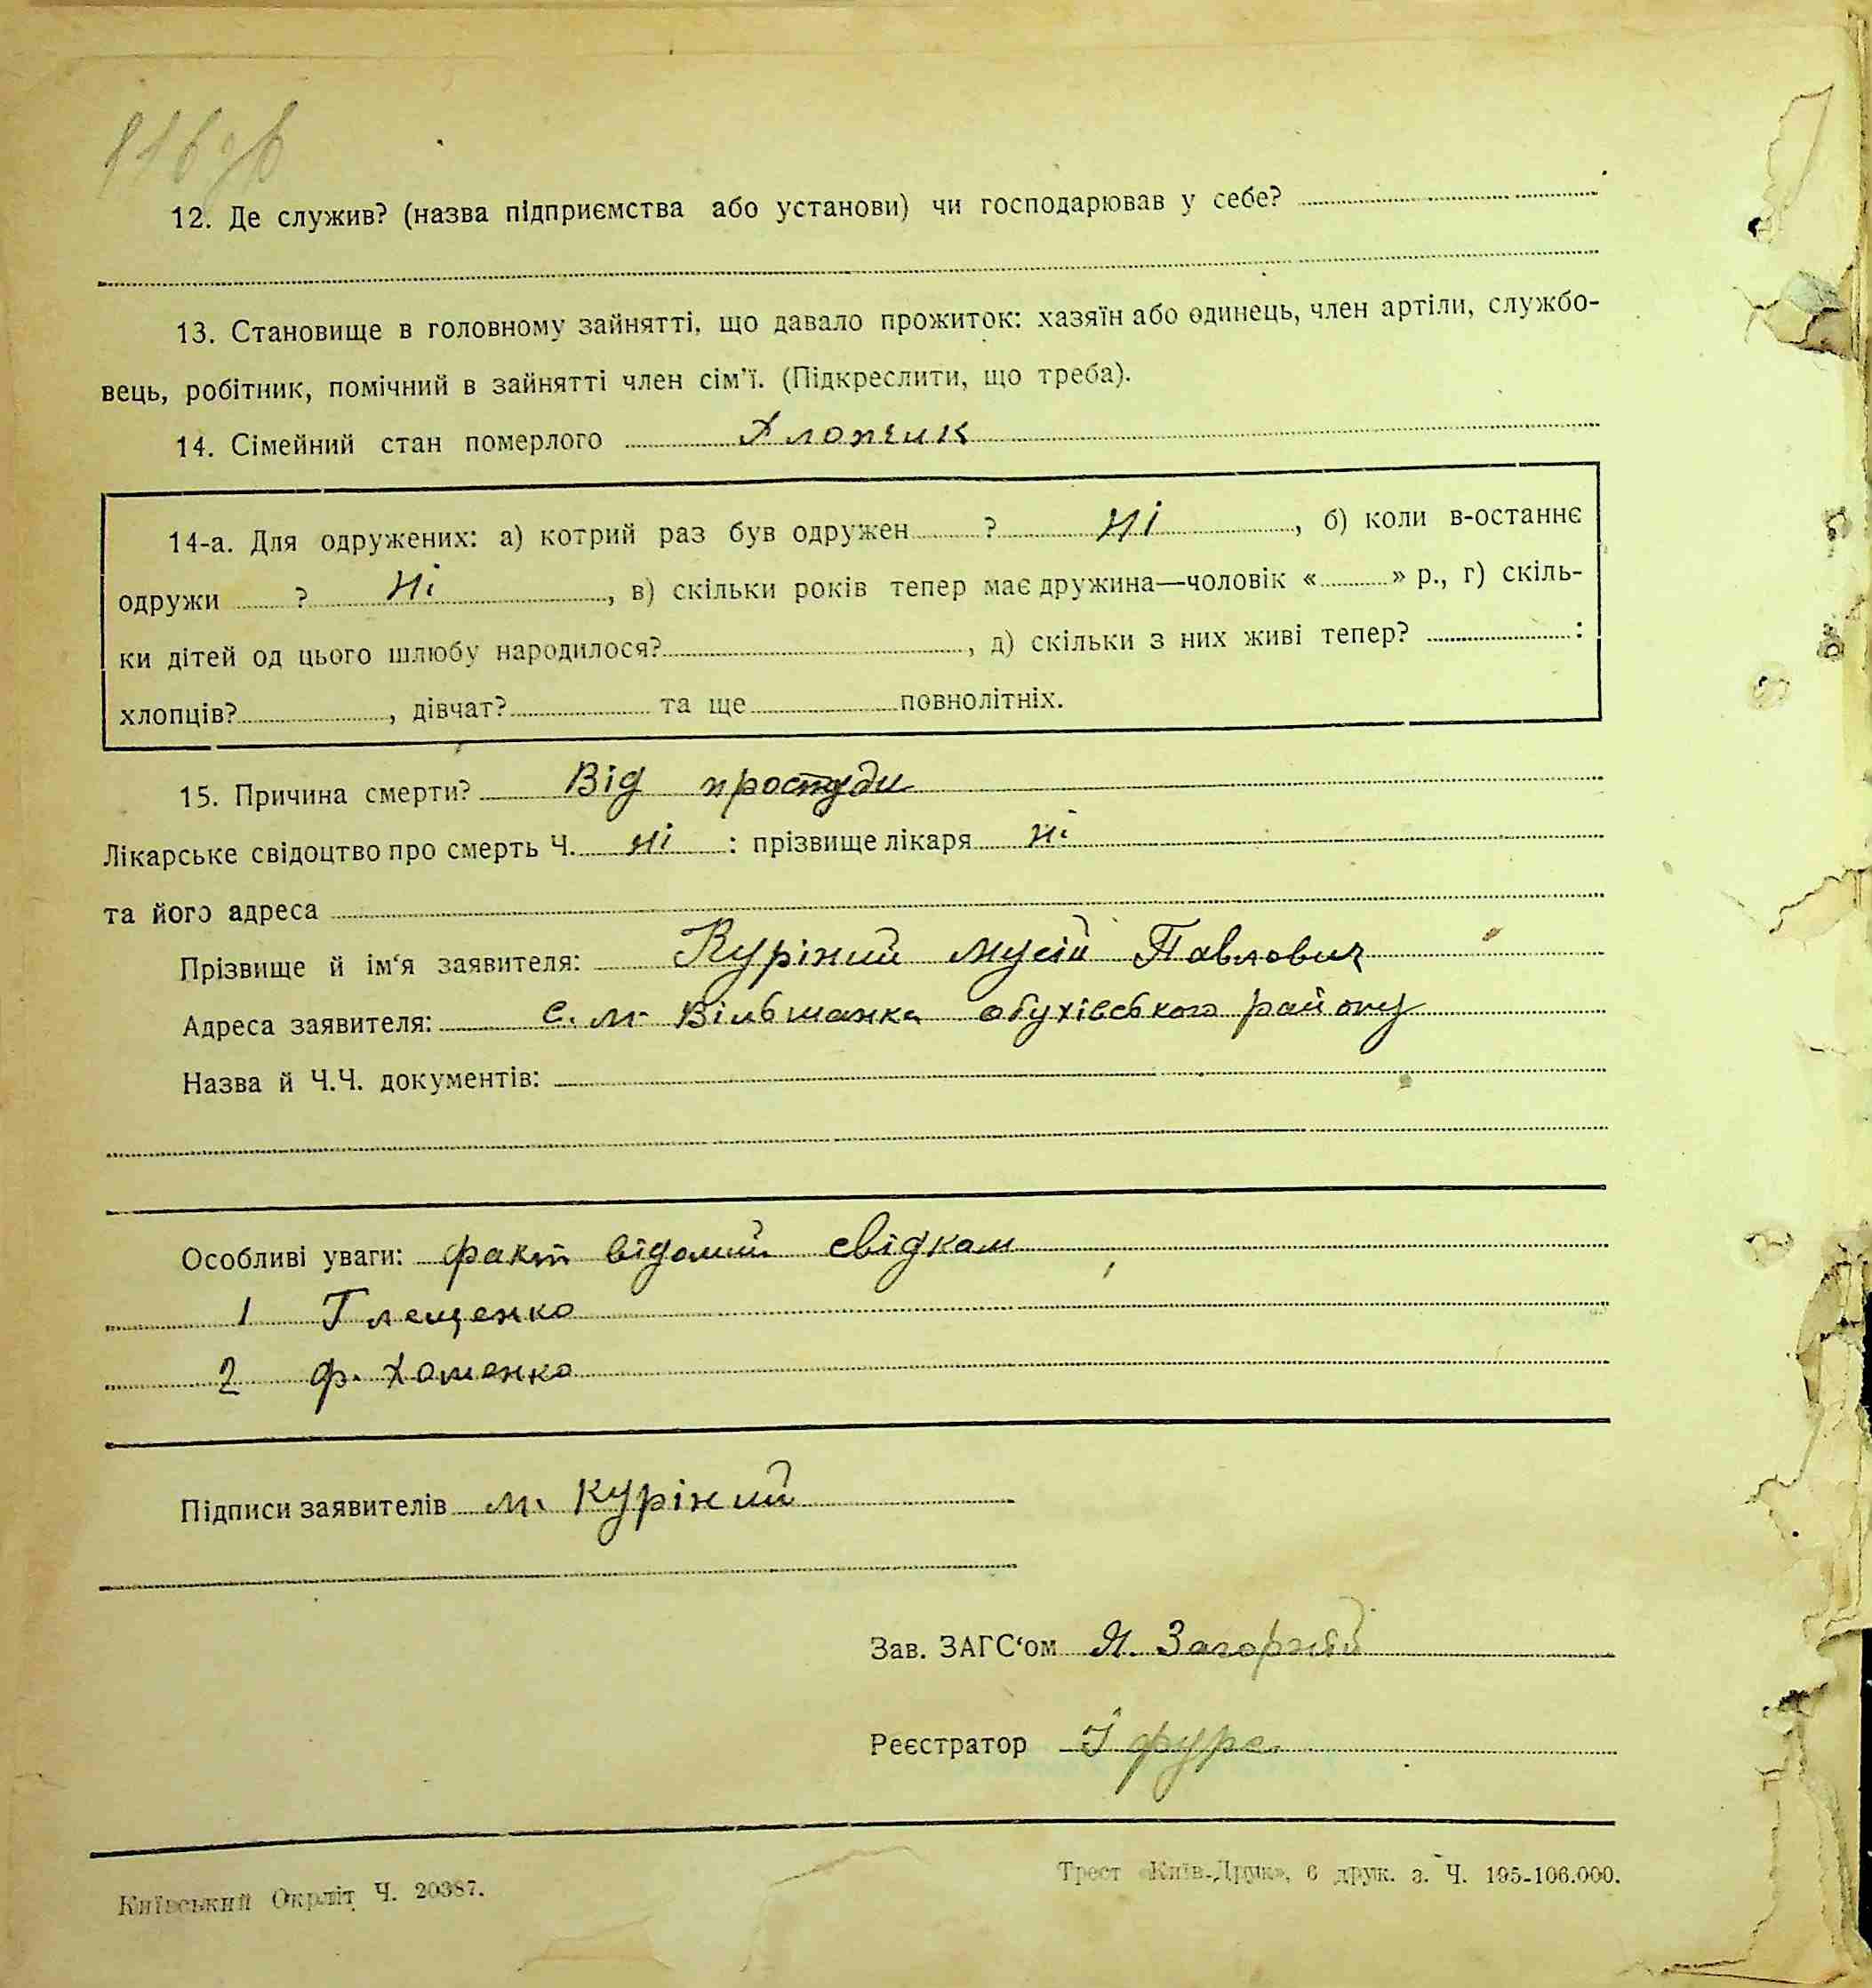 116 зв
12. Де служив? (назва підприємства або установи) чи господарював у себе?
13. Становище в головному зайнятті, що давало прожиток: хазяїн або одинець, член артіли, службо-
вець, робітник, помічний в зайнятті член сім'ї. (Підкреслити, що треба).
14. Сімейний стан померлого Хлопчик
14-а. Для одружених: а) котрий раз був одружен ? Ні, б) коли в-останнє
одружи ? Ні, в) скільки років тепер має дружина—чоловік « » р., г) скіль-
ки дітей од цього шлюбу народилося? , д) скільки з них живі тепер? :
хлопців? , дівчат? та ще повнолітніх.
15. Причина смерти? Від простуди
Лікарське свідоцтво про смерть Ч. ні : прізвище лікаря ні
та його адреса
Прізвище й ім'я заявителя: Куріний Мусій Павлович
Адреса заявителя: с. м. Вільшанка обухівського району
Назва й Ч.Ч. документів:
Особливі уваги: факт відомий свідкам
1 Глещенко
2 Ф. Хоменко
Підписи заявителів м. Куріний
Зав. ЗАГС'ом Я. Загорній
Реєстратор І фурс
Київський Окрліт Ч. 20387.
Трест «Київ-Друк», 6 друк. з. Ч. 195-106.000.